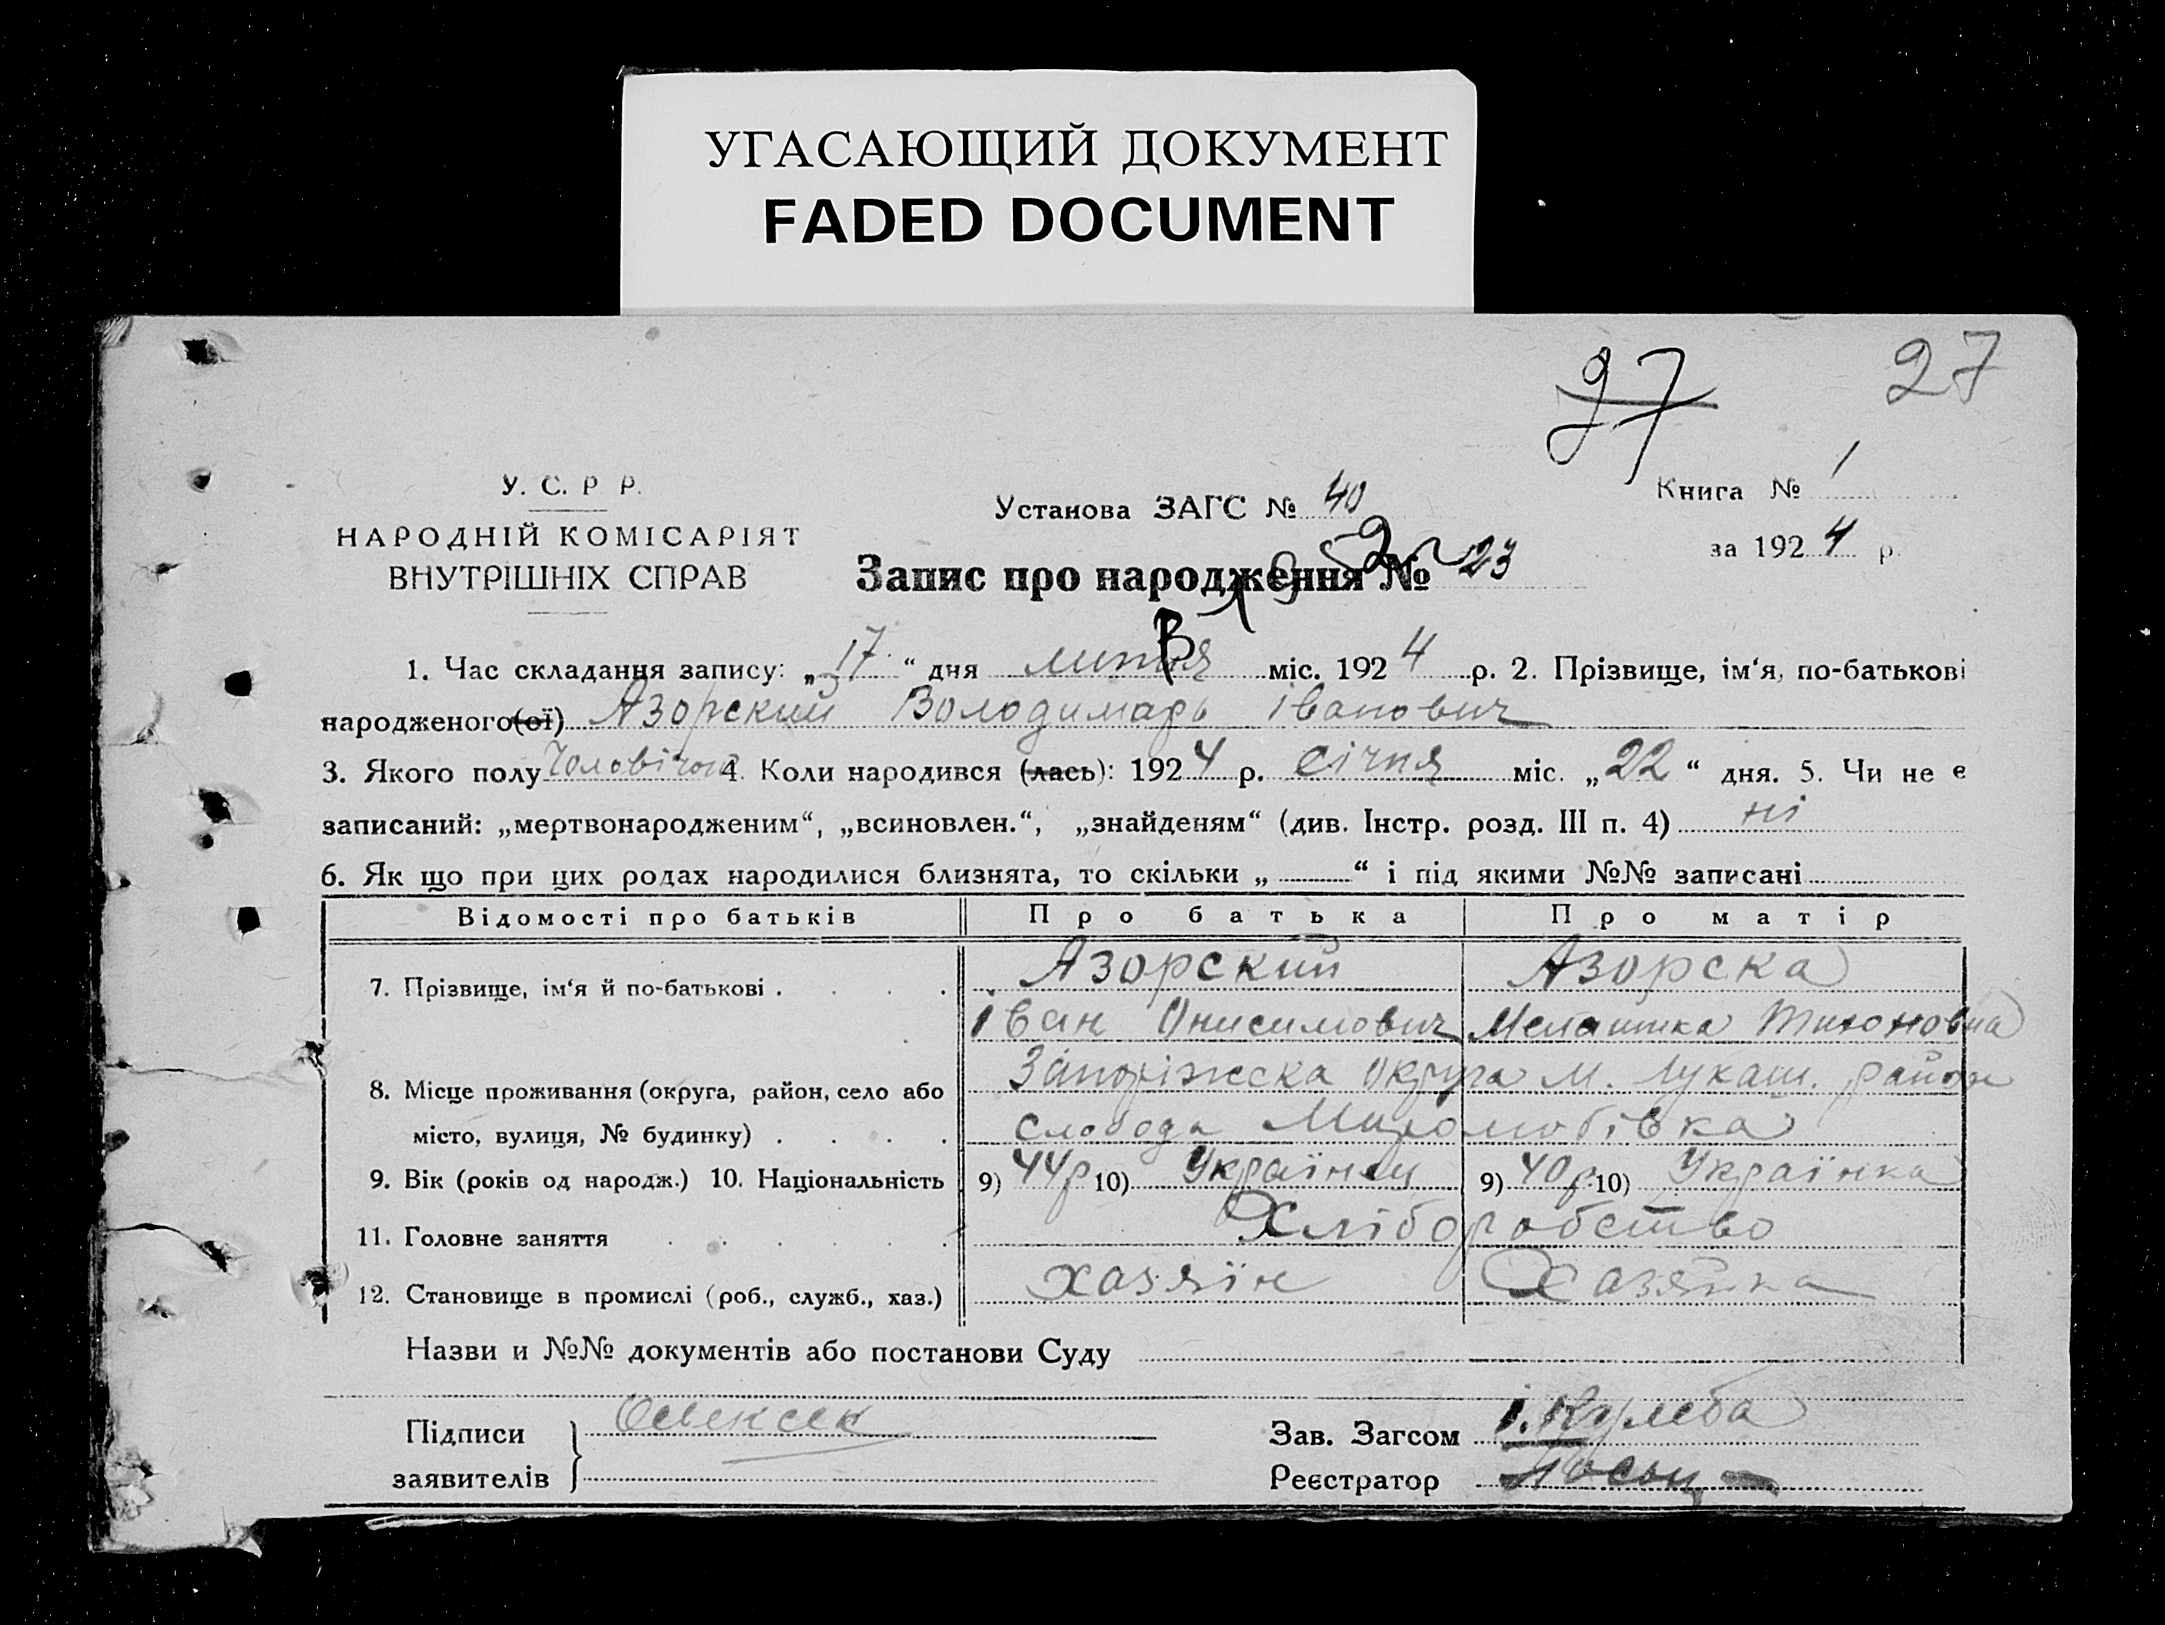 УГАСАЮЩИЙ ДОКУМЕНТ
FADED DOCUMENT
97 27
У. С. Р Р.
НАРОДНІЙ КОМІСАРІЯТ
ВНУТРІШНІХ СПРАВ
Установа ЗАГС № 40
Книга № 1
за 1924 р.
Запис про народження № 23
1. Час складання запису: „17“ дня лютня міс. 1924 р. 2. Прізвище, ім‘я, по-батькові
народженого(ої) Азорский Володимарь Іванович
3. Якого полу Чоловічого 4. Коли народився (лась): 1924 р. Січня міс. „22“ дня. 5. Чи не е
записаний: „мертвонародженим“, „всиновлен.“, „знайденям“ (див. Інстр. розд. III п. 4) ні
6. Як що при цих родах народилися близнята, то скільки „ “ і під якими №№ записані
Відомості про батьків Про батька Про матір
7. Прізвище, ім‘я й по-батькові Азорский Азорска
Іван Онисимович Мелашка Тихоновна
8. Місце проживання (округа, район, село або Запоріжска Округа М. Лукаш. район
місто, вулиця, № будинку) слобода Миролюбівка
9. Вік (років од народж.) 10. Національність 9) 44р 10) Українец 9) 40р 10) Українка
11. Головне заняття Хліборобство
12. Становище в промислі (роб., служб., хаз.) хазяїн Хазяйка
Назви и №№ документів або постанови Суду
Підписи
заявителів
Зав. Загсом І. Кулеба
Реєстратор